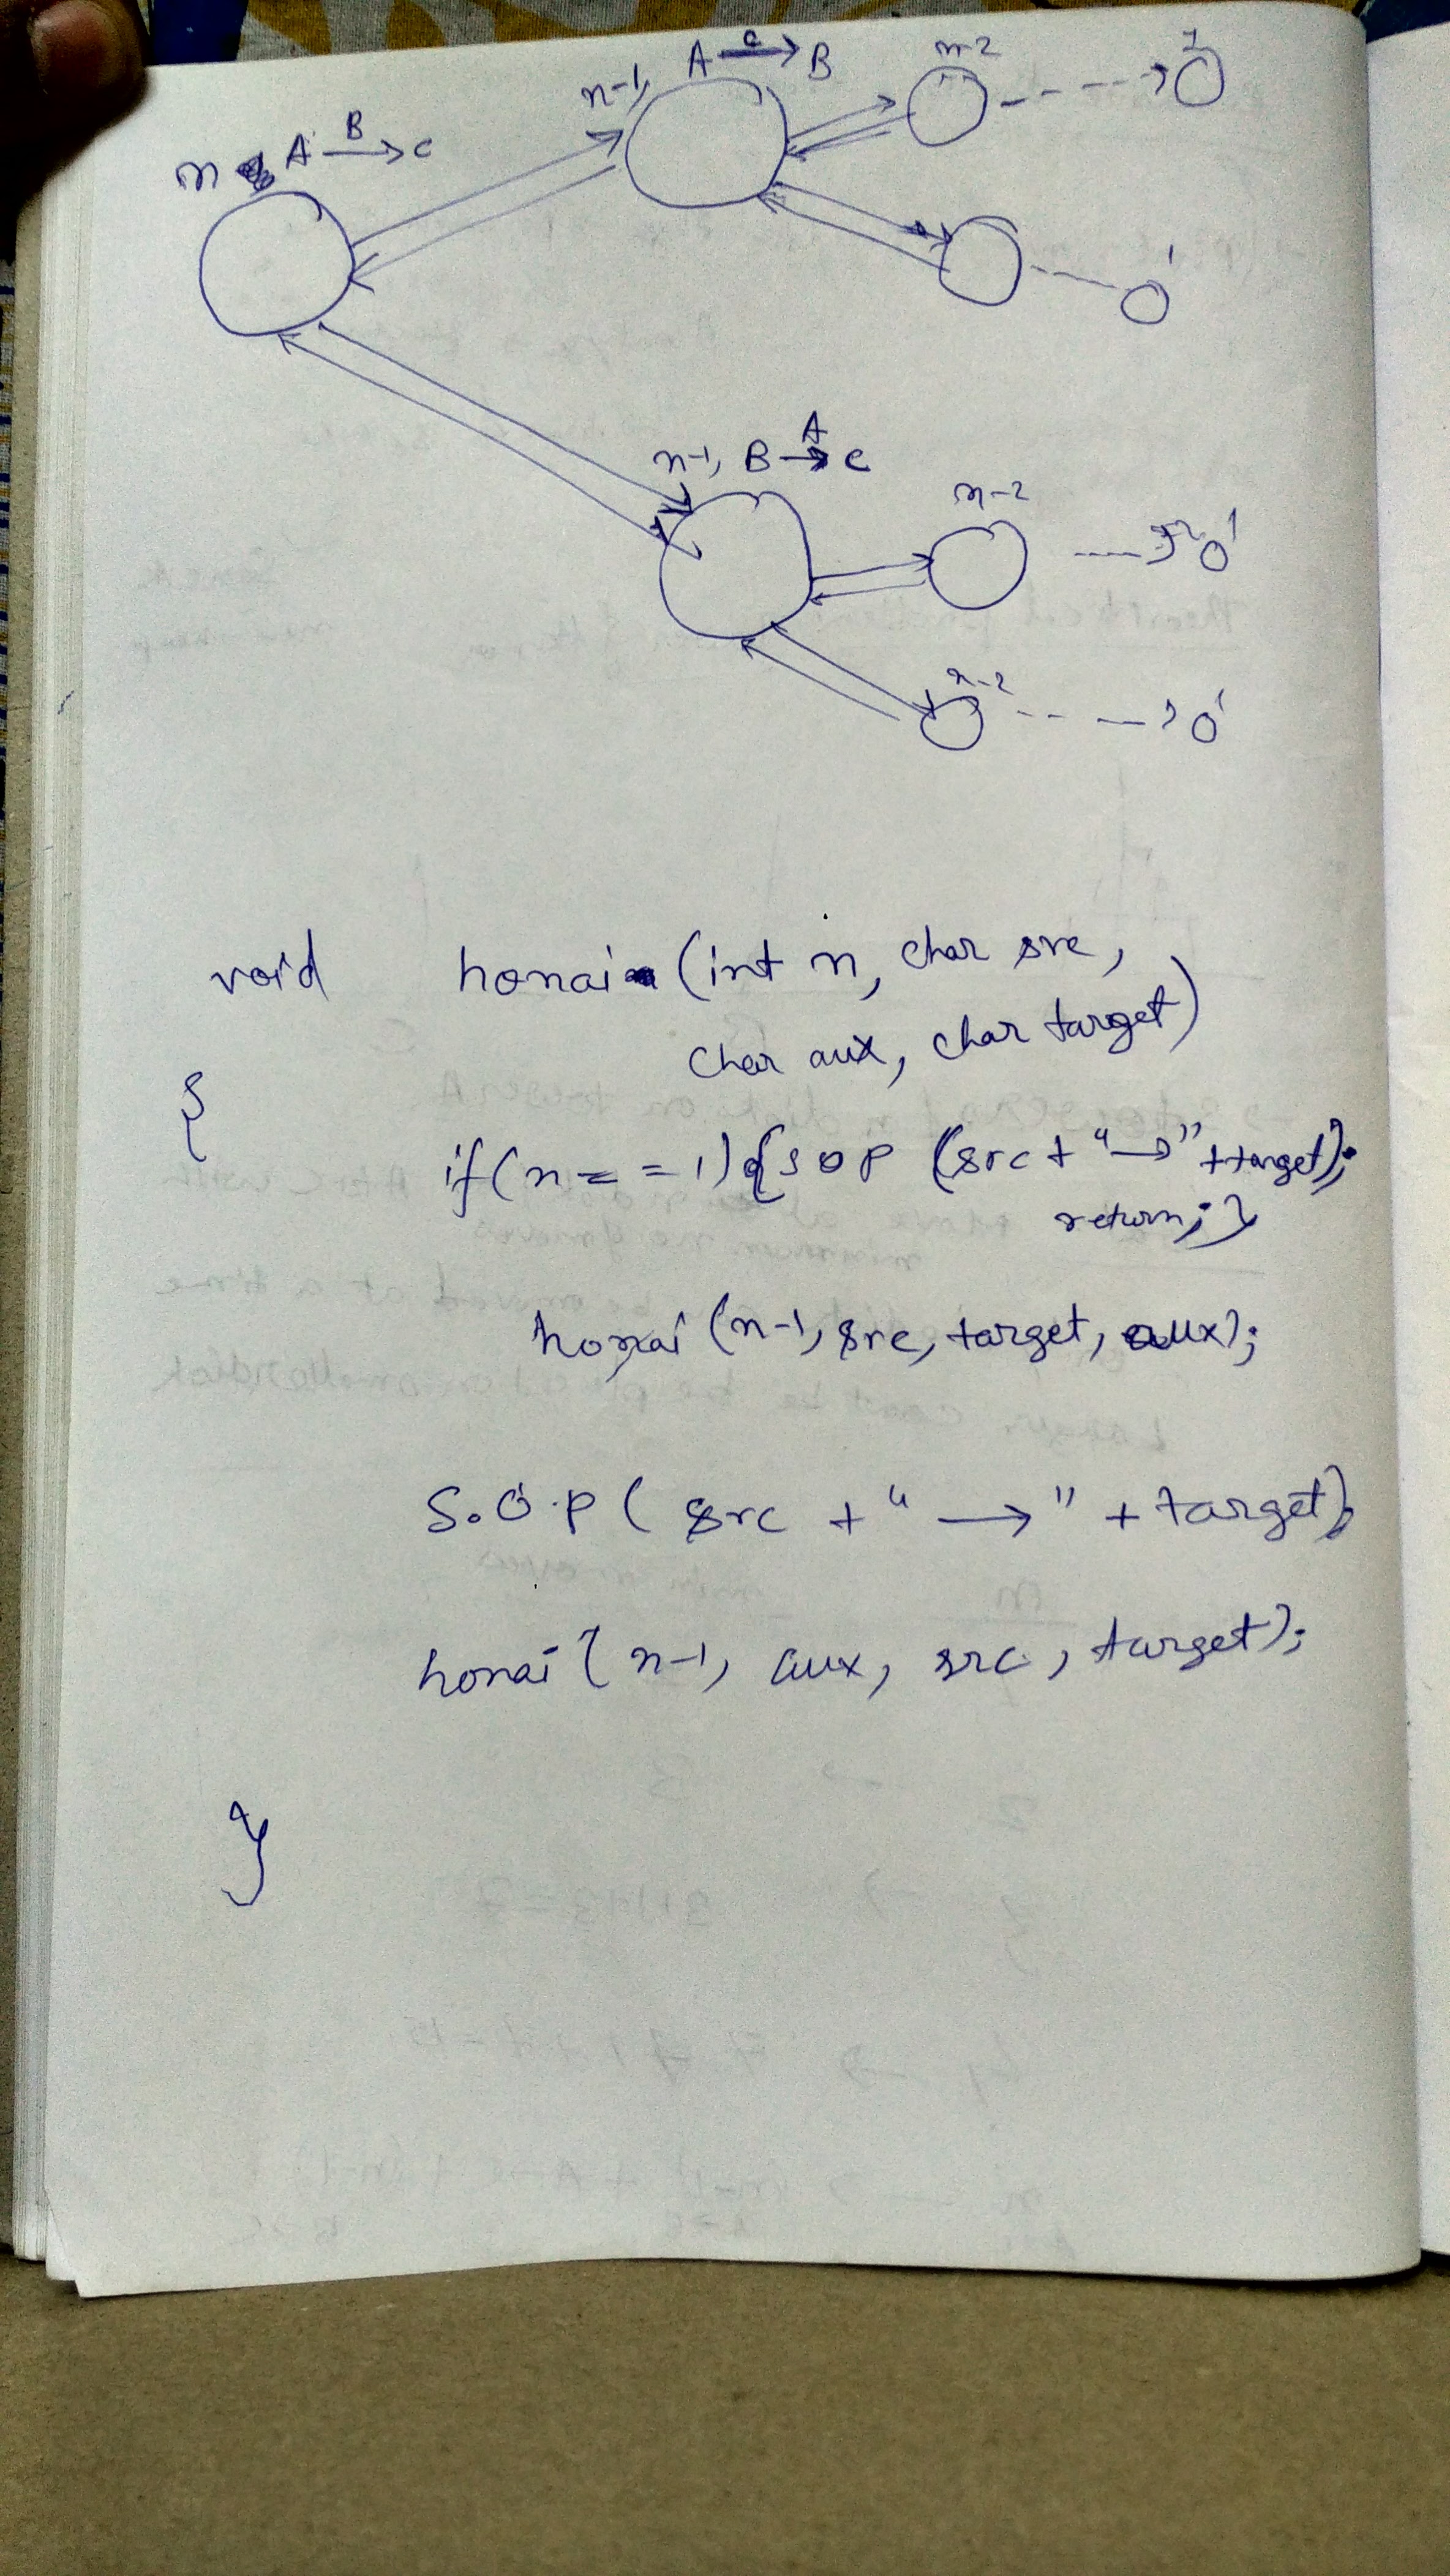 n-1, A C→ B
n-2
1
n A B→ C
1
n-1, B A→ C
n-2
1
n-2
1
void honai (int n, char src,
char aux, char target)
{
if (n == 1) { S O P (src + "→" + target);
return; }
honai (n-1, src, target, aux);
S.O.P ( src + "→" + target);
honai ( n-1, aux, src, target);
}